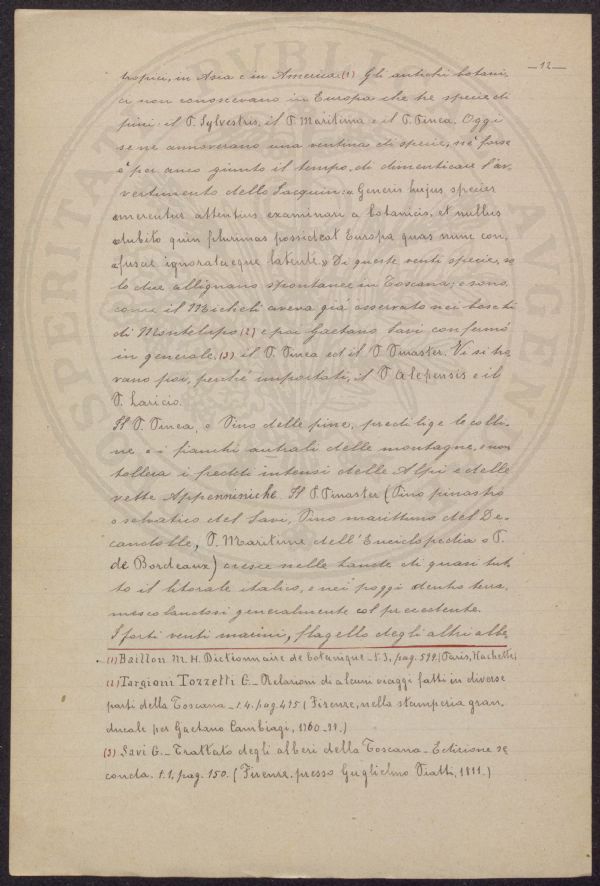 —12—
tropici, in Asia e in America.(1) Gli antichi botani,
ci non conoscevano in Europa che tre specie di
pini: il P. Sylvestris, il P. Maritima e il P. Pinea. Oggi
se ne annoverano una ventina di specie, nè forse
è per anco giunto il tempo, di dimenticare l'av,
vertimento dello Jacquin: « Generis hujus species
«merentur attentius examinari a botanicis, et nullus
«dubito quin plurimas possideat Europa quas nunc con,
«fusae ignorataeque latent.» Di queste venti specie, so
lo due allignano spontanee in Toscana; e sono,
come il Micheli aveva già osservato nei boschi
di Montelupo (2) e poi Gaetano Savi confermò
in generale, (3) il P. Pinea ed il P. Pinaster. Vi si tro,
vano poi, perchè importati, il P. Alepensis e il
P. Laricio.
Il P. Pinea, o Pino delle pine, predilige le colli-
ne e i fianchi australi delle montagne, e non
tollera i freddi intensi delle Alpi e delle
vette Appenniniche. Il P. Pinaster (Pino pinastro
o selvatico del Savi, Pino marittimo del De-
candolle, P. Maritime dell'Enciclopedia o P.
de Bordeaux) cresce nelle lande di quasi tut-
to il litorale italico, e nei poggi dentro terra,
mescolandosi generalmente col precedente.
I forti venti marini, flagello degli altri albe,
(1) Baillon M. H. Dictionnaire de botanique. t. 3, pag. 599. (Paris, Hachette)
(2) Targioni Tozzetti G. - Relazioni di alcuni viaggi fatti in diverse
parti della Toscana - t. 4. pag. 415 (Firenze, nella stamperia gran,
ducale per Gaetano Cambiagi, 1760-79.)
(3) Savi G. - Trattato degli alberi della Toscana - Edizione se
conda. t. 1, pag. 150. (Firenze. presso Guglielmo Piatti, 1811.)